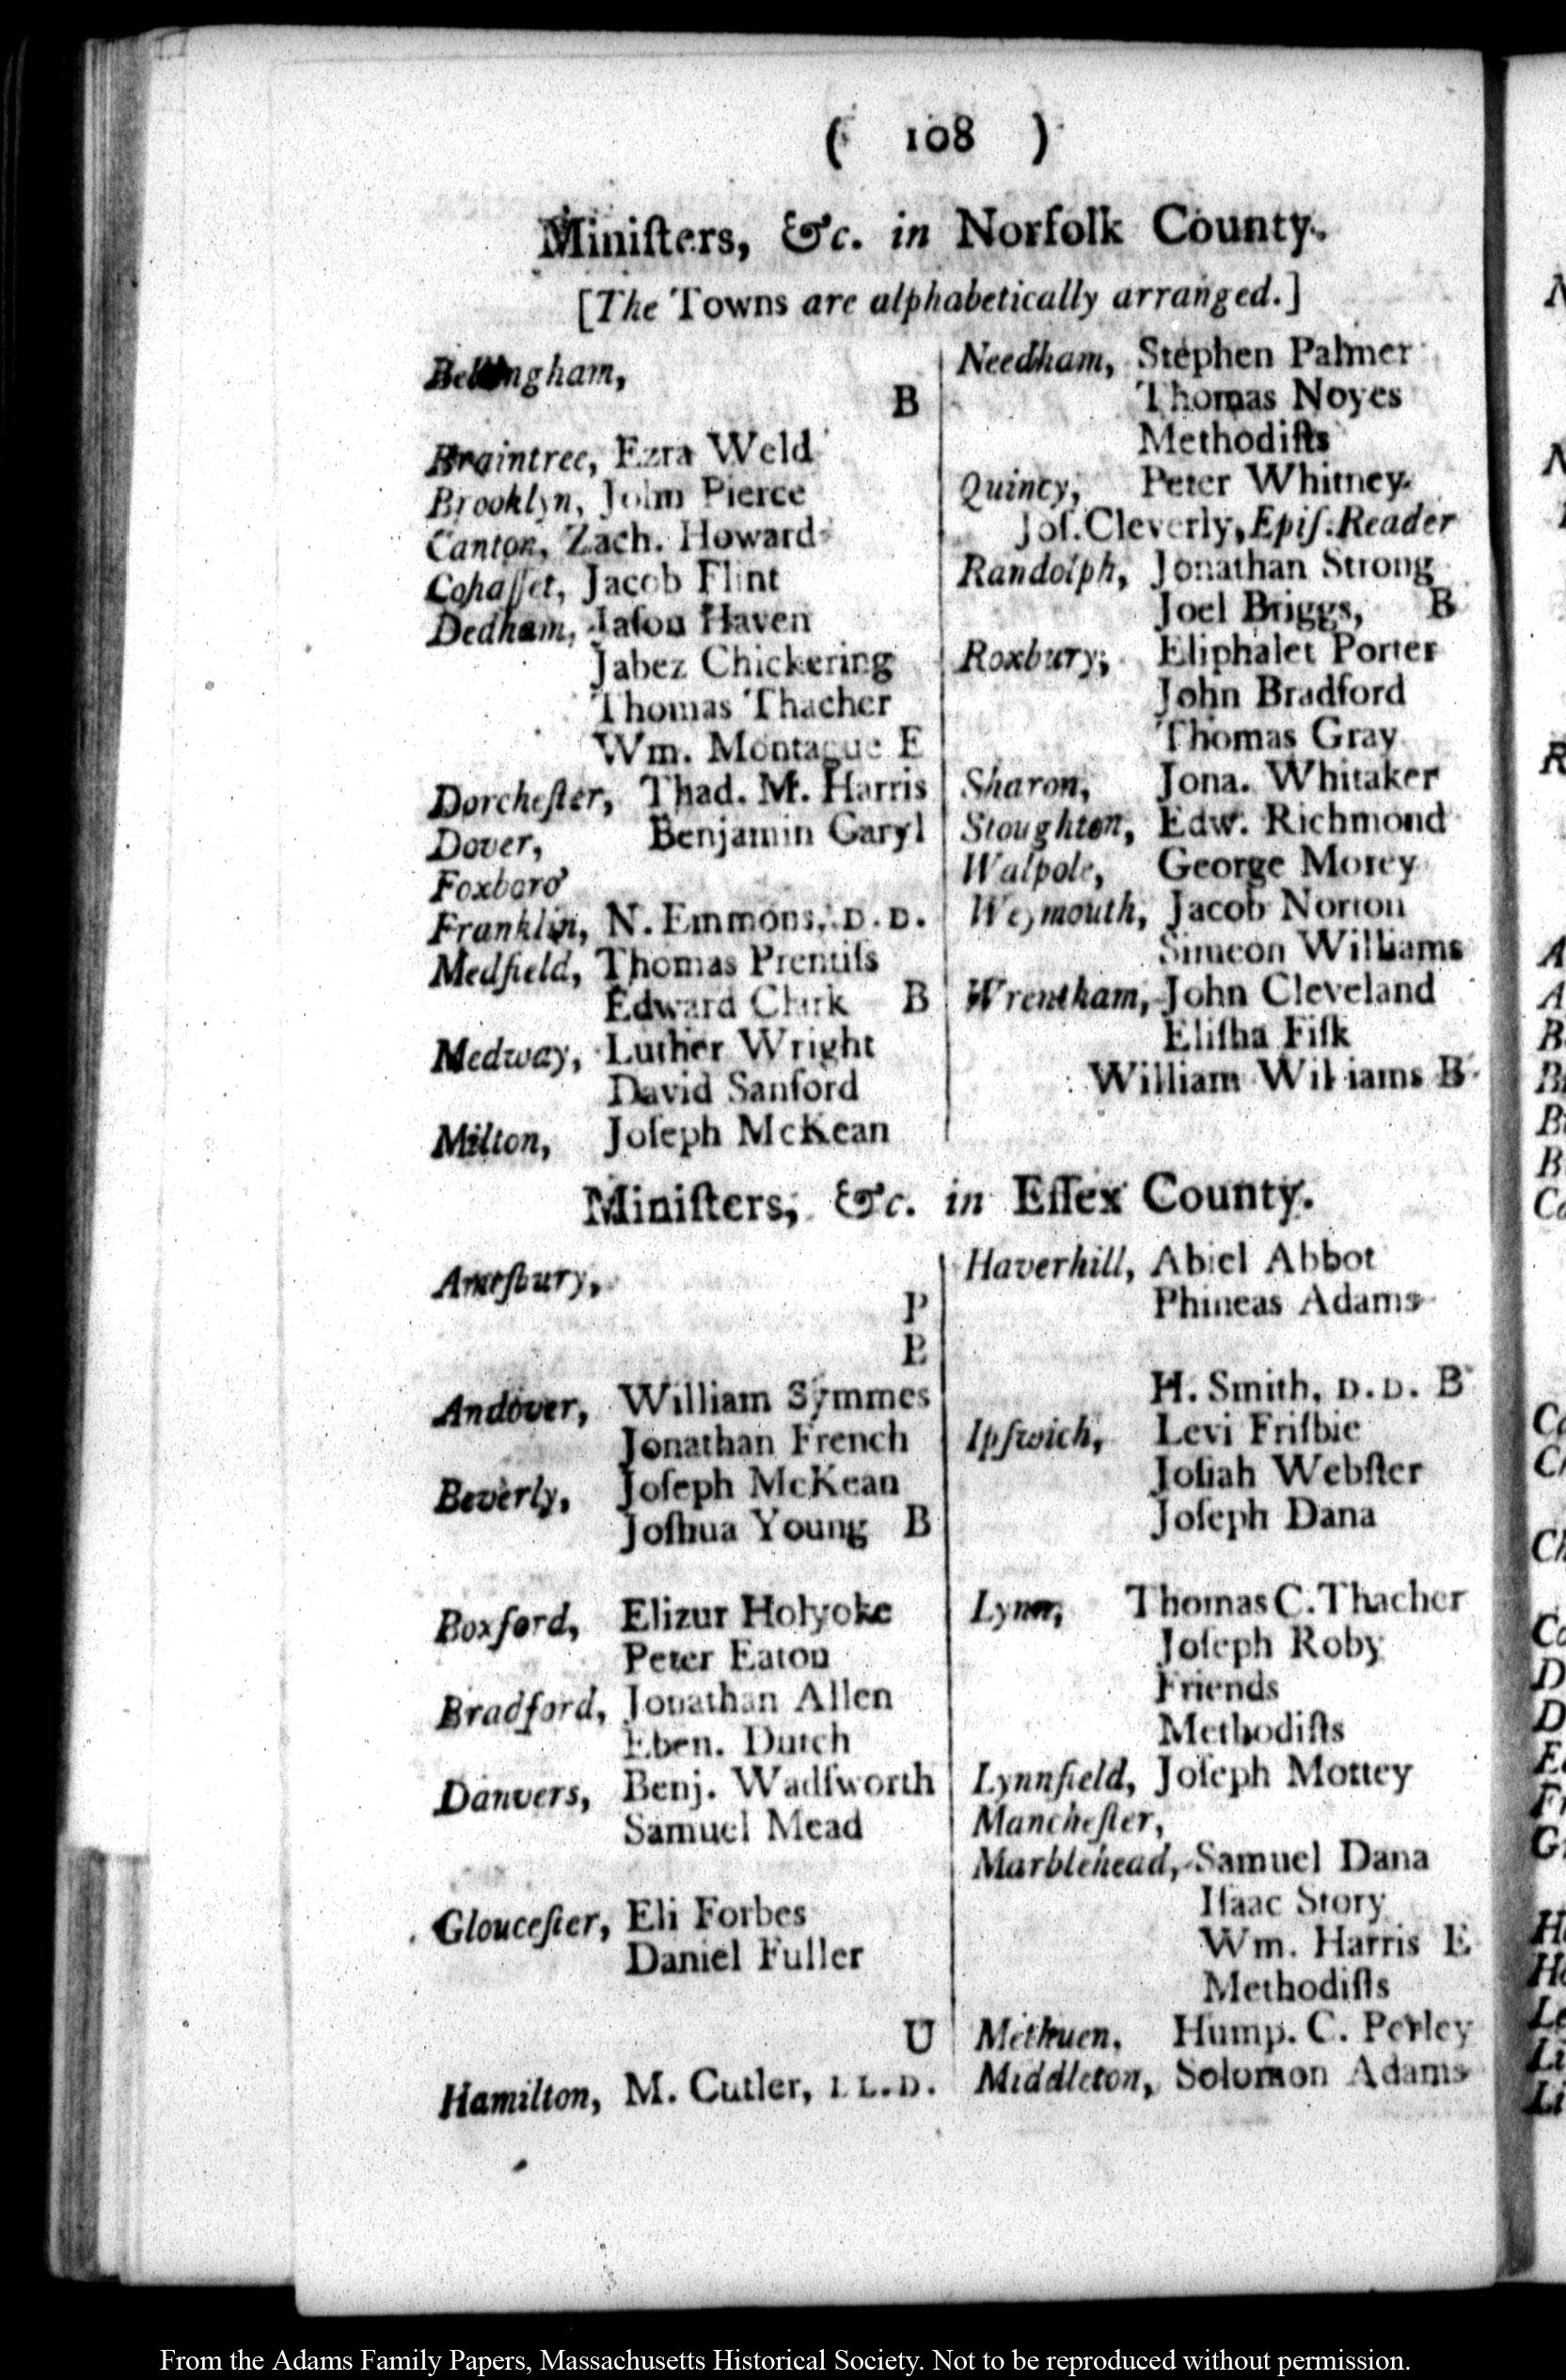 ( 108 )
Miniſters, &c. in Norfolk County.
[The Towns are alphabetically arranged.]
Bellingham,
B
Braintree, Ezra Weld
Brooklyn, John Pierce
Canton, Zach. Howard
Cohaſſet, Jacob Flint
Dedham, Jaſon Haven
Jabez Chickering
Thomas Thacher
Wm. Montague E
Dorcheſter, Thad. M. Harris
Dover, Benjamin Caryl
Foxboro'
Franklin, N. Emmons, D. D.
Medfield, Thomas Prentiſs
Edward Clark B
Medway, Luther Wright
David Sanford
Milton, Joſeph McKean
Needham, Stephen Palmer
Thomas Noyes
Methodiſts
Quincy, Peter Whitney
Joſ. Cleverly, Epiſ. Reader
Randolph, Jonathan Strong
Joel Briggs, B
Roxbury, Eliphalet Porter
John Bradford
Thomas Gray
Sharon, Jona. Whitaker
Stoughton, Edw. Richmond
Walpole, George Morey
Weymouth, Jacob Norton
Simeon Williams
Wrentham, John Cleveland
Eliſha Fiſk
William Williams B
Miniſters, &c. in Eſſex County.
Ameſbury,
P
B
Andover, William Symmes
Jonathan French
Beverly, Joſeph McKean
Joſhua Young B
Boxford, Elizur Holyoke
Peter Eaton
Bradford, Jonathan Allen
Eben. Dutch
Danvers, Benj. Wadſworth
Samuel Mead
Glouceſter, Eli Forbes
Daniel Fuller
U
Hamilton, M. Cutler, LL.D.
Haverhill, Abiel Abbot
Phineas Adams
H. Smith, D. D. B
Ipſwich, Levi Friſbie
Joſiah Webſter
Joſeph Dana
Lynn, Thomas C. Thacher
Joſeph Roby
Friends
Methodiſts
Lynnfield, Joſeph Mottey
Mancheſter,
Marblehead, Samuel Dana
Iſaac Story
Wm. Harris E
Methodiſts
Methuen, Hump. C. Perley
Middleton, Solomon Adams
From the Adams Family Papers, Massachusetts Historical Society. Not to be reproduced without permission.